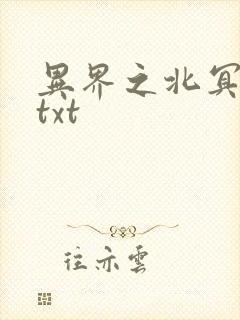 異界之北冥
txt
往亦雲